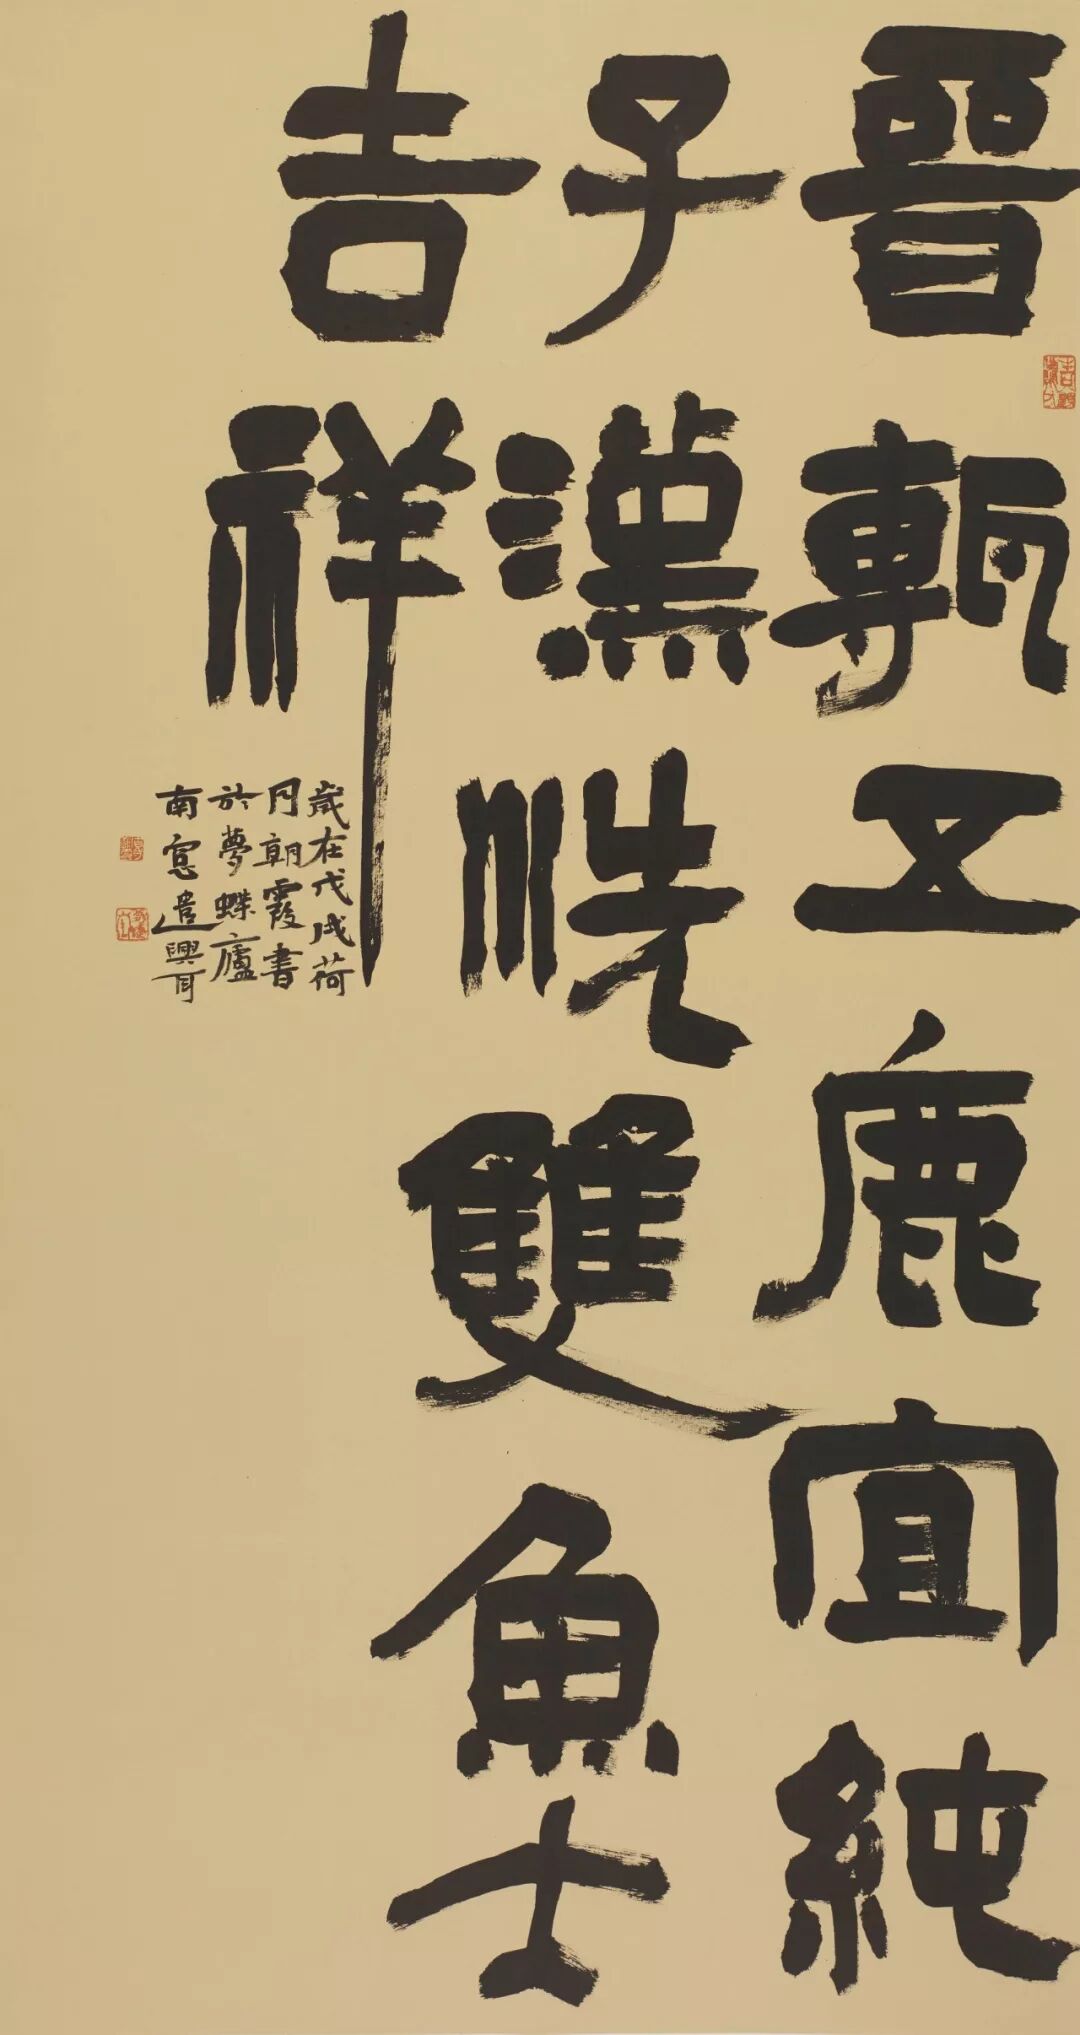 晉甎五鹿宜純
子漢洗雙魚士
吉祥
歲在戊戌荷
月朝霞書
於夢蝶廬
南窓遣興耳